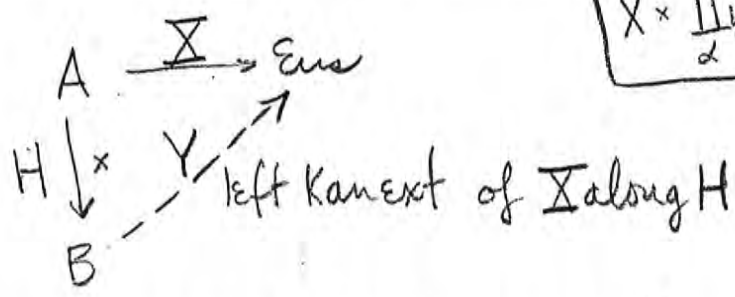 X × ∐
α
A X Ens
H × Y left Kan ext of X along H
B